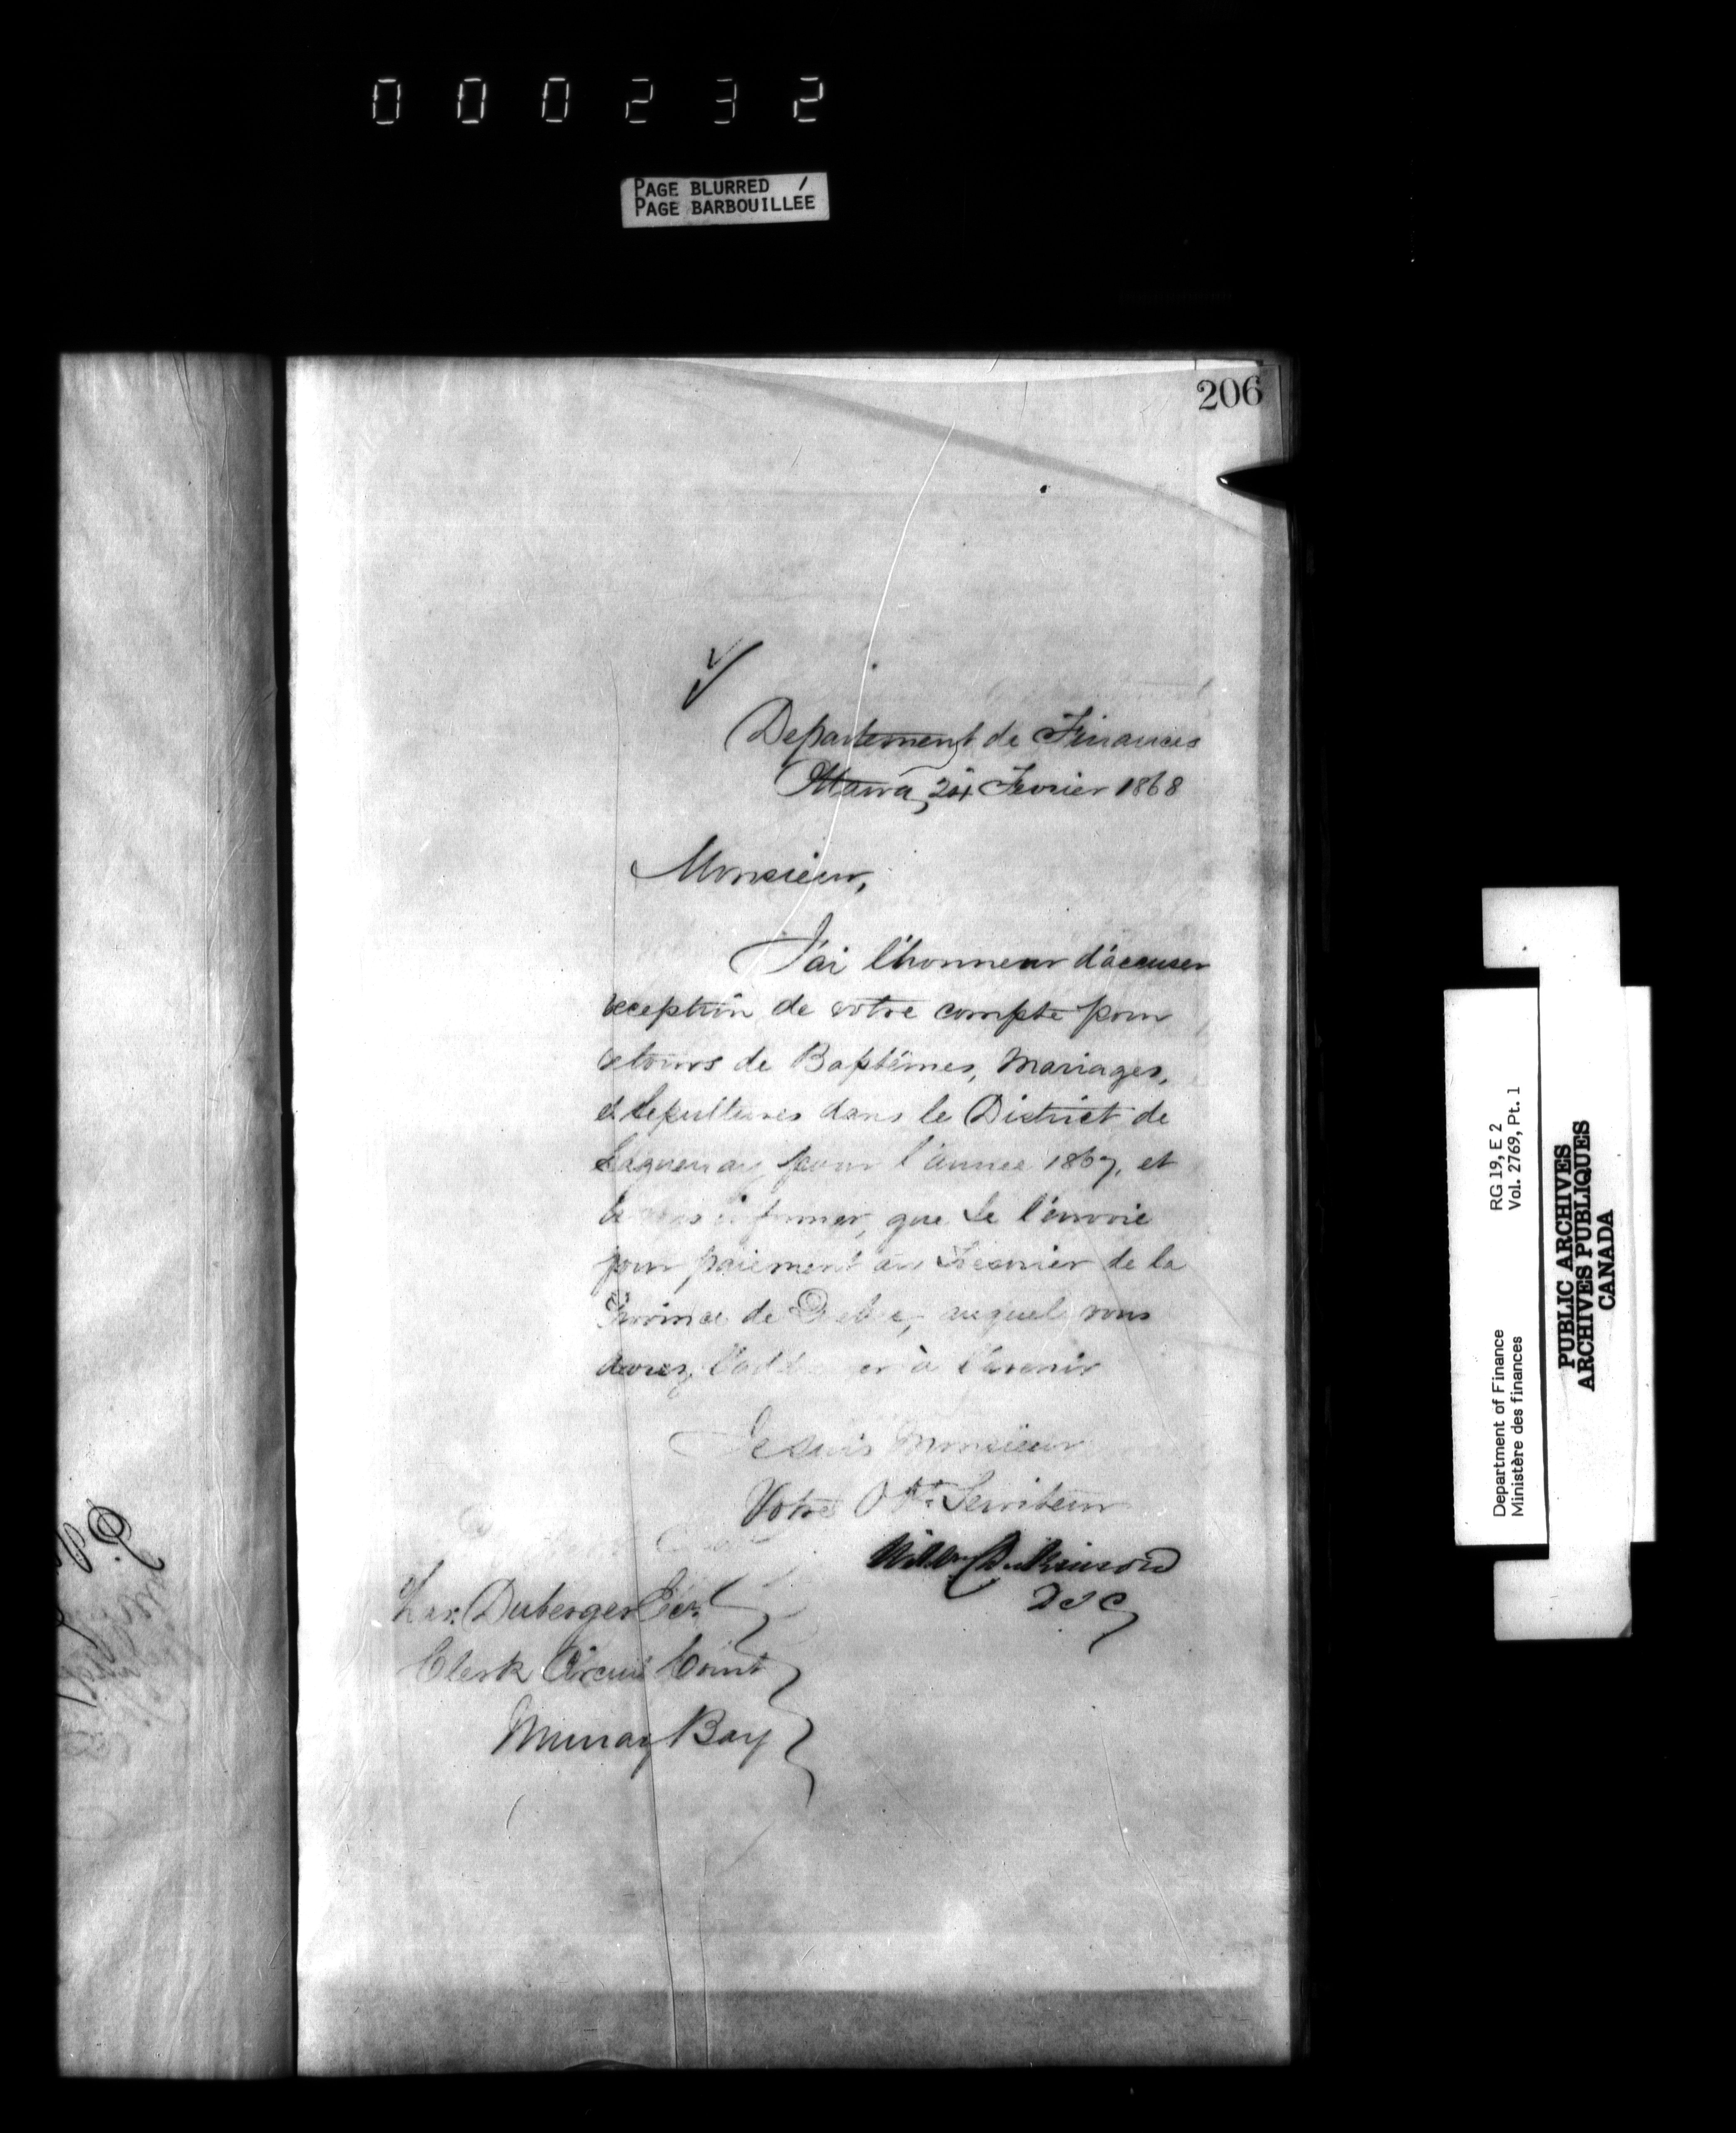 000232
PAGE BLURRED /
PAGE BARBOUILLÉE
206
Departement de Finances
Ottawa, 24 Fevrier 1868
Monsieur,
J'ai l'honneur d'accuser
reception de votre compte pour
retours de Baptêmes, Mariages,
et Sepultures dans le District de
Saguenay pour l'année 1867, et
de vous informer, que Je l'envoie
pour paiement au Tresorier de la
Province de Quebec, auquel vous
devrez à l'avenir
Je suis Monsieur
Votre Obt. Serviteur
D I G
Chas. Duberger Ecr.
Clerk Circuit Court
Murray Bay
Department of Finance RG 19, E 2
Ministère des finances Vol. 2769, Pt. 1
PUBLIC ARCHIVES
ARCHIVES PUBLIQUES
CANADA